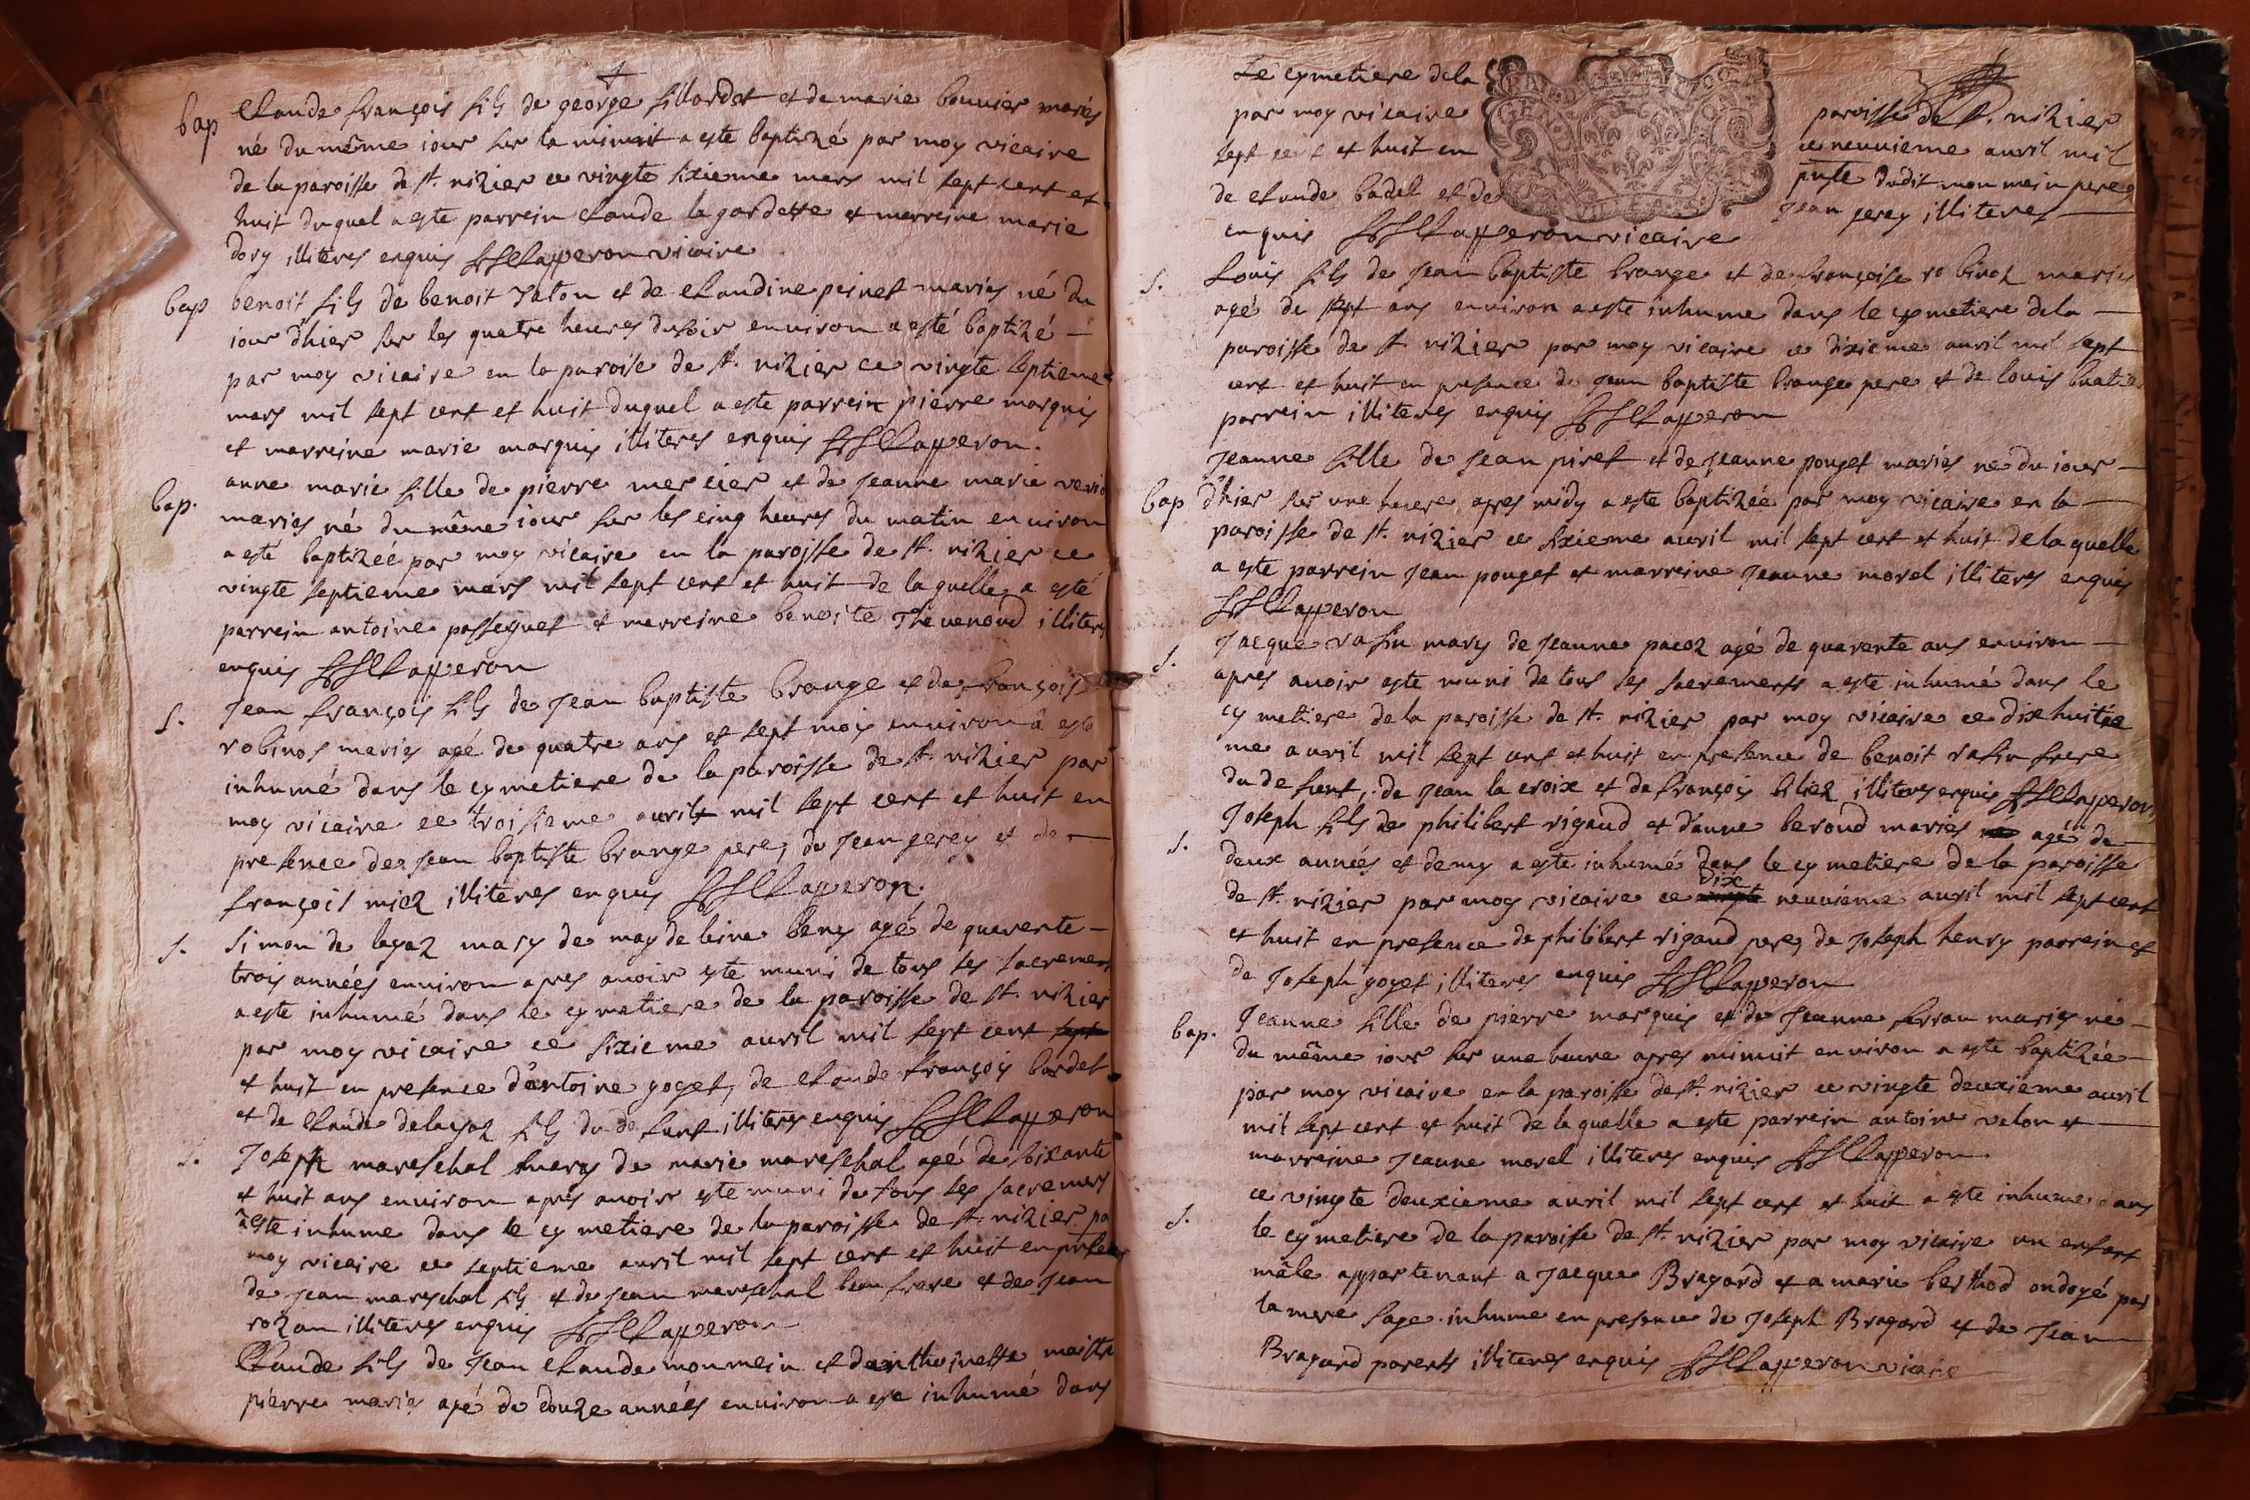 bap Claude françois fils de george fillardet et de marie bouvier mariés
né du même iour sur la minuit a este baptizé par moy vicaire
de la paroisse de st. nizier ce vingte sixieme mars mil sept cent et
huit duquel a este parrein claude la gardette et marreine marie
dory illiteres enquis Clapperon vicaire
bap benoit fils de benoit Jaton et de claudine peinet mariés né du
iour d'hier sur les quatre heures du soir environ a esté baptizé
par moy vicaire en la paroise de st. nizier ce vingte septieme
mars mil sept cent et huit duquel a este parrein pierre marquis
et marreine marie marquis illiteres enquis Clapperon.
bap. anne marie fille de pierre mercier et de Jeanne marie
mariés né du même iour sur les cinq heures du matin environ
a esté baptizee par moy vicaire en la paroisse de st. nizier ce
vingte septieme mars mil sept cent et huit de la quelle a esté
parrein antoine passequet et marreine benoite Thevenoud illiteres
enquis Clapperon
S. Jean françois fils de Jean baptiste brange et de françoise
robinos mariés agé de quatre ans et sept mois environ a esté
inhumé dans le cymetiere de la paroisse de st. nizier par
moy vicaire ce troisieme avril mil sept cent et huit en
presence de Jean baptiste brange pere, de Jean gerey et de
françois miez illiteres enquis Clapperon.
S. Simon de layaz mary de magdeleine beny agé de quarente
trois années environ apres avoir este muni de tous les sacremens
a este inhumé dans le cymetiere de la paroisse de st. nizier
par moy vicaire ce sixieme avril mil sept cent sept
et huit en presence d'antoine goget, de claude françois bardet
et de claude delayaz fils du defunt illiteres enquis Clapperon
S. Joseph mareschal mary de marie mareschal agé de soixante
et huit ans environ apres avoir este muni de tous les sacremens
a este inhume dans le cymetiere de la paroisse de st. nizier pa
moy vicaire ce septieme avril mil sept cent et huit en presence
de Jean mareschal fils et de Jean mareschal beau frere et de Jean
rozan illiteres enquis Clapperon
Claude fils de Jean claude monmein et d'anthoinette maistre
pierre mariés agé de douze années environ a este inhumé dans
Le cymetiere de la paroisse de st. nizier
par moy vicaire ce neuvieme avril mil
sept cent et huit en pnse dudit monmein pere
de claude badel et de Jean gerey illiteres
enquis Clapperon vicaire
S. Louis fils de Jean baptiste brange et de françoise robinoz mariés
agé de sept ans environ a este inhume dans le cymetiere de la
paroisse de st nizier par moy vicaire ce dixieme avril mil sept
cent et huit en presence de Jean baptiste brange pere et de louis
parrein illiteres enquis Clapperon
Jeanne fille de Jean piret et de Jeanne pouget mariés né du iour
bap d'hier sur une heure apres midy a este baptizée par moy vicaire en la
paroisse de st. nizier ce sixieme avril mil sept cent et huit de la quelle
a este parrein Jean pouget et marreine Jeanne morel illiteres enquis
Clapperon
S. Jacque vasin mary de Jeanne pacoz agé de quarente ans environ
apres avoir este muni de tous les sacrements a este inhumé dans le
cymetiere de la paroisse de st. nizier par moy vicaire ce dixhuitie
me avril mil sept cent et huit en presence de benoit vasin frere
du defunt, de Jean la croix et de françois bliez illiteres enquis Clapperon
S. Joseph fils de philibert rigaud et d'anne beroud mariés né agé de
deux années et demy a este inhumé dans le cymetiere de la paroisse
dix
de st. nizier par moy vicaire ce vingte neuvieme avril mil sept cent
et huit en presence de philibert rigaud pere, de Joseph henry parrein et
de Joseph goget illiteres enquis Clapperon
bap. Jeanne fille de pierre marquis et de Jeanne ferran mariés né
du même iour sur une heure apres minuit environ a este baptizée
par moy vicaire en la paroisse de st. nizier ce vingte deuxieme avril
mil sept cent et huit de la quelle a este parrein antoine velon et
marreine Jeanne morel illiteres enquis Clapperon.
S. ce vingte deuxieme avril mil sept cent et huit a este inhume dans
le cymetiere de la paroisse de st. nizier par moy vicaire un enfant
mâle appartenant a Jacque Bragard et a marie berthod ondoyé par
la mere sage. inhume en presence de Joseph Bragard et de Jean
Bragard parents illiteres enquis Clapperon vicaire